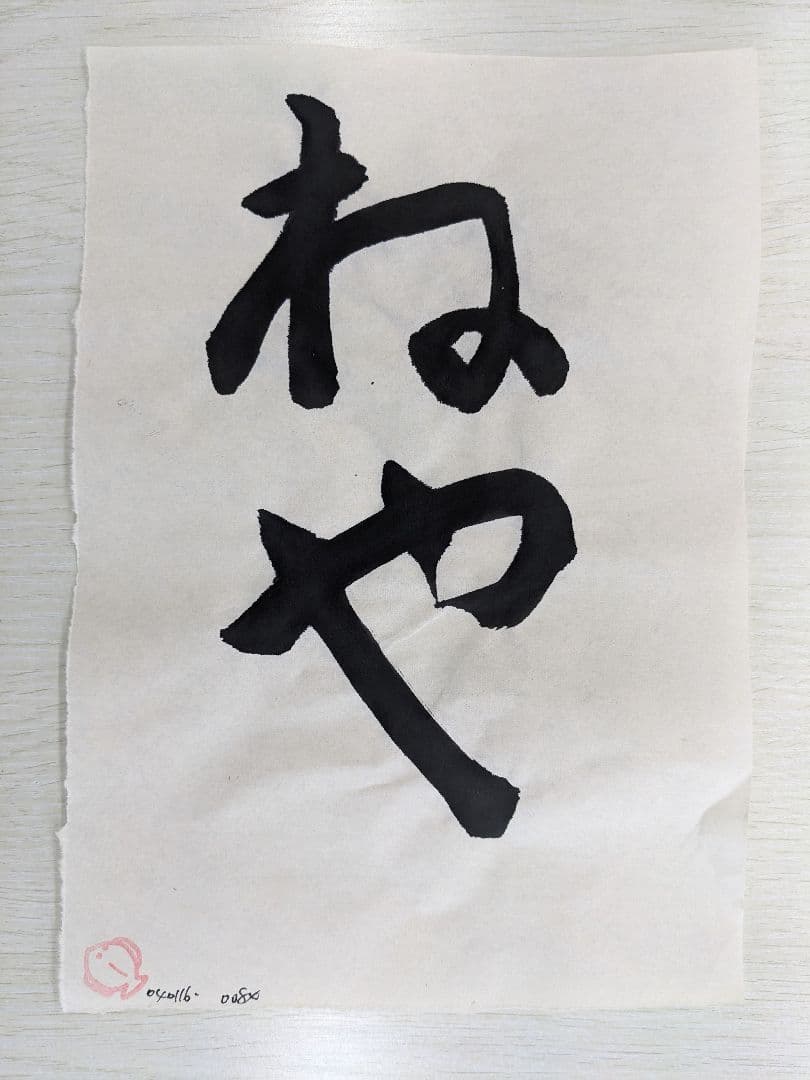 ねや
040116- 0080